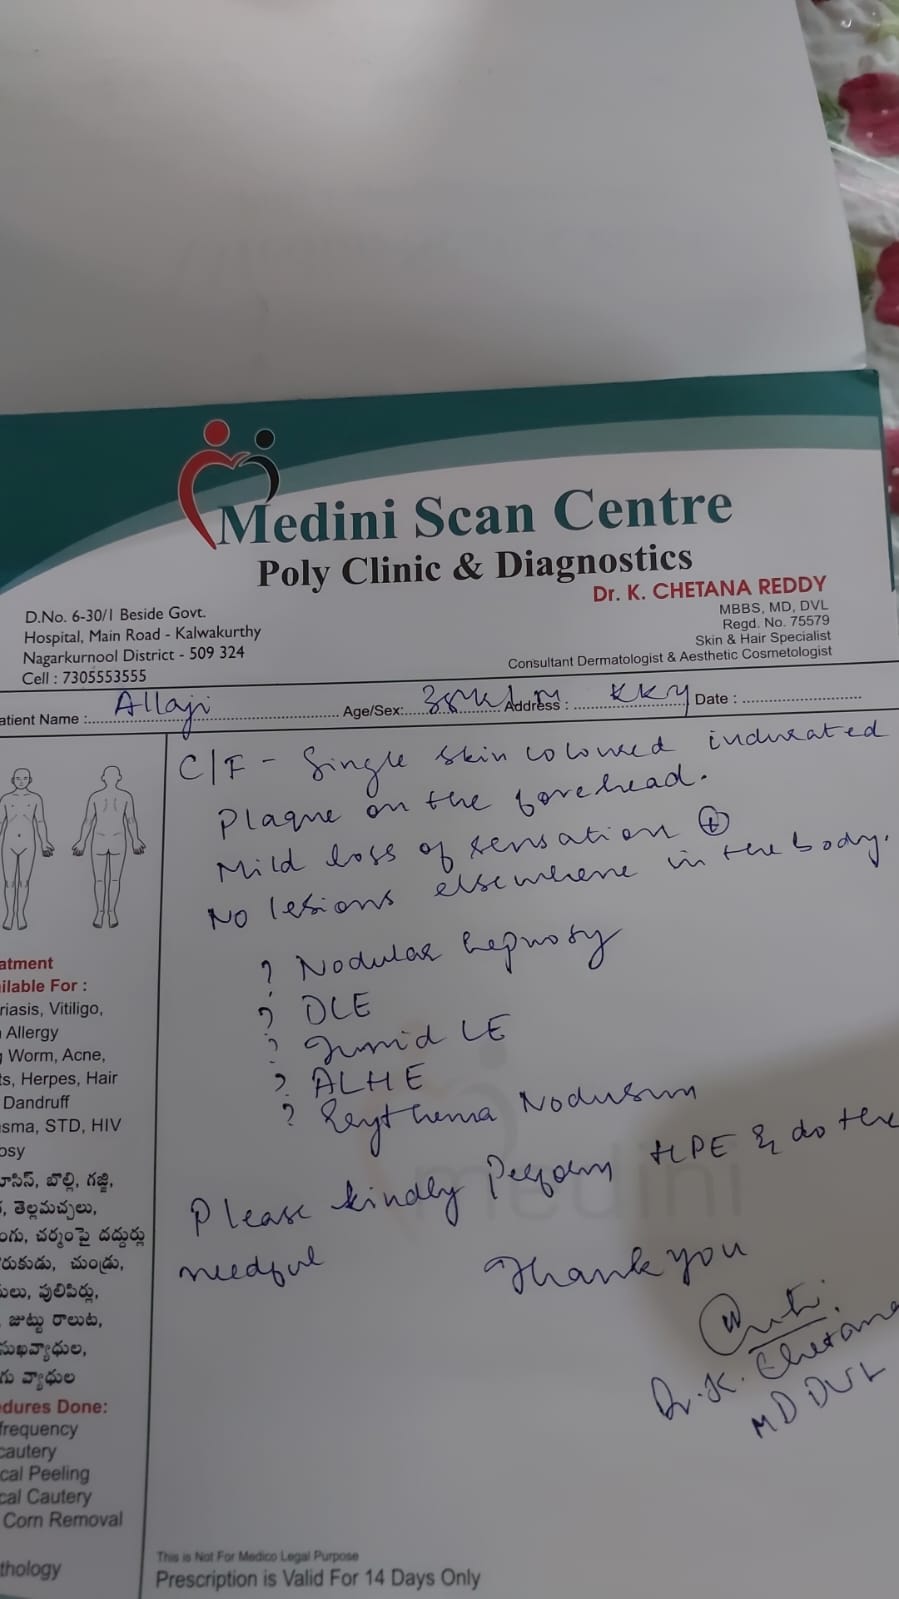 Medini Scan Centre
Poly Clinic & Diagnostics
Dr. K. CHETANA REDDY
MBBS, MD, DVL
Regd. No. 75579
Skin & Hair Specialist
Consultant Dermatologist & Aesthetic Cosmetologist
D.No. 6-30/1 Beside Govt.
Hospital, Main Road - Kalwakurthy
Nagarkurnool District - 509 324
Cell : 7305553555
atient Name : Allaji Age/Sex: Address : KKY Date :
C/F - Single skin coloured indurated
Plaque on the forehead.
Mild loss of sensation ⊕
No lesions elsewhere in the body.
? Nodular leprosy
? DLE
? Tumid LE
? ALHE
? Erythema Nodusum
Please kindly Perform HPE & do the
needful
Thank you
Dr. K. Chetana
MD DVL
atment
ilable For :
riasis, Vitiligo,
Allergy
Worm, Acne,
ts, Herpes, Hair
Dandruff
sma, STD, HIV
osy
బొల్లి, గజ్జి,
తెల్లమచ్చలు,
చర్మంపై దద్దుర్లు
చుండ్రు,
పులిపిర్లు,
జుట్టు రాలుట,
వ్యాధులు
edures Done:
frequency
cautery
cal Peeling
cal Cautery
Corn Removal
thology
medini
This is Not For Medico Legal Purpose
Prescription is Valid For 14 Days Only